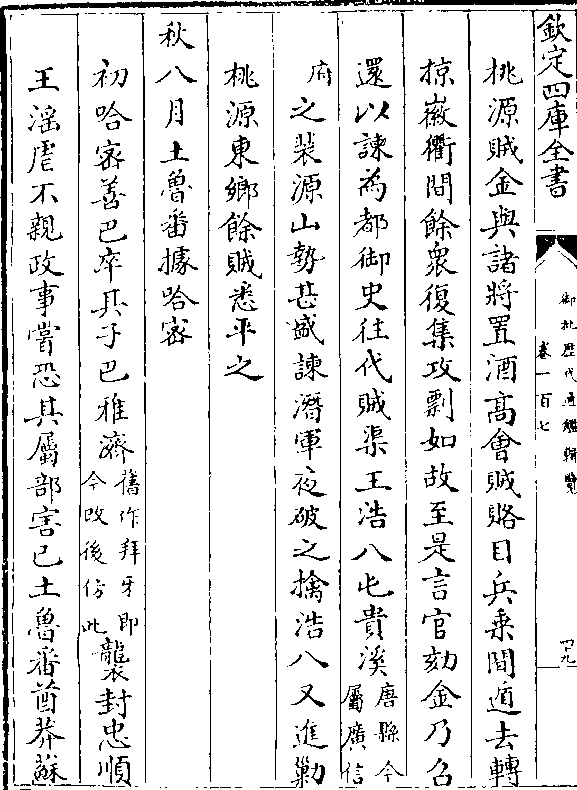 欽定四庫全書
御批歷代通鑑輯覽
卷一百七
四九
桃源賊金與諸將置酒髙會賊賂目兵乗間遁去轉
掠徽衢間餘衆復集攻剽如故至是言官劾金乃召
還以諫為都御史往代賊渠王浩八屯貴溪唐縣今屬廣信
府之裴源山勢甚盛諫潛軍夜破之擒浩八又進勦
桃源東鄉餘賊悉平之
秋八月土魯番據哈密
初哈密善巴卒其子巴雅濟舊作拜牙即今改後仿此襲封忠順
王淫虐不親政事嘗恐其屬部害已土魯番酋莽蘇